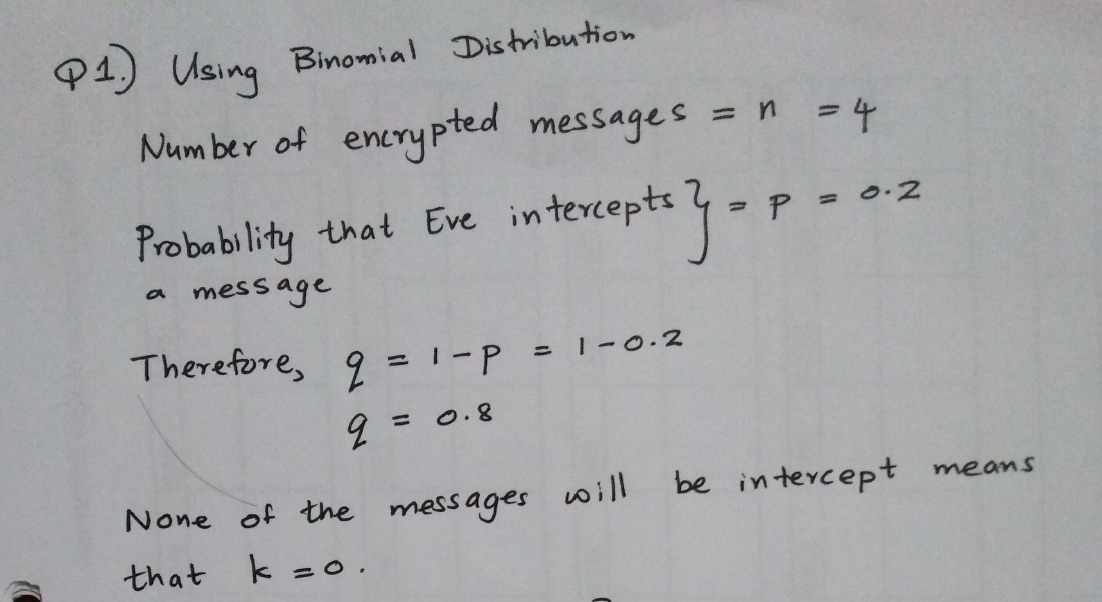 Q1.) Using Binomial Distribution
Number of encrypted messages = n = 4
Probability that Eve intercepts } = P = 0.2
a message
Therefore, q = 1 - P = 1 - 0.2
q = 0.8
None of the messages will be intercept means
that k = 0.